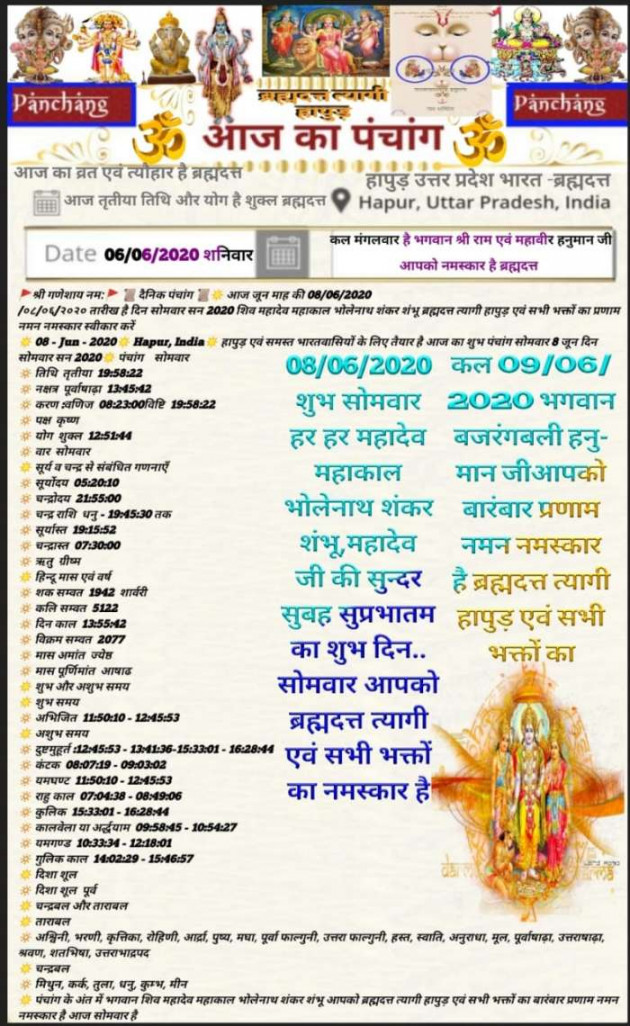 Panchang
ब्रह्मदत्त त्यागी
हापुड़
Panchang
ॐ आज का पंचांग ॐ
आज का व्रत एवं त्योहार है ब्रह्मदत्त
आज तृतीया तिथि और योग है शुक्ल ब्रह्मदत्त
हापुड़ उत्तर प्रदेश भारत -ब्रह्मदत्त
Hapur, Uttar Pradesh, India
Date 06/06/2020 शनिवार
कल मंगलवार है भगवान श्री राम एवं महावीर हनुमान जी
आपको नमस्कार है ब्रह्मदत्त
श्री गणेशाय नम: दैनिक पंचांग आज जून माह की 08/06/2020
/०८/०६/२०२० तारीख है दिन सोमवार सन 2020 शिव महादेव महाकाल भोलेनाथ शंकर शंभू ब्रह्मदत्त त्यागी हापुड़ एवं सभी भक्तों का प्रणाम
नमन नमस्कार स्वीकार करें
08 - Jun - 2020 Hapur, India हापुड़ एवं समस्त भारतवासियों के लिए तैयार है आज का शुभ पंचांग सोमवार 8 जून दिन
सोमवार सन 2020 पंचांग सोमवार
तिथि तृतीया 19:58:22
नक्षत्र पूर्वाषाढ़ा 13:45:42
करण :वणिज 08:23:00विष्टि 19:58:22
पक्ष कृष्ण
योग शुक्ल 12:51:44
वार सोमवार
सूर्य व चन्द्र से संबंधित गणनाएँ
सूर्योदय 05:20:10
चन्द्रोदय 21:55:00
चन्द्र राशि धनु - 19:45:30 तक
सूर्यास्त 19:15:52
चन्द्रास्त 07:30:00
ऋतु ग्रीष्म
हिन्दू मास एवं वर्ष
शक सम्वत 1942 शार्वरी
कलि सम्वत 5122
दिन काल 13:55:42
विक्रम सम्वत 2077
मास अमांत ज्येष्ठ
मास पूर्णिमांत आषाढ
शुभ और अशुभ समय
शुभ समय
अभिजित 11:50:10 - 12:45:53
अशुभ समय
दुष्टमुहूर्त :12:45:53 - 13:41:36-15:33:01 - 16:28:44
कंटक 08:07:19 - 09:03:02
यमघण्ट 11:50:10 - 12:45:53
राहु काल 07:04:38 - 08:49:06
कुलिक 15:33:01 - 16:28:44
कालवेला या अर्द्धयाम 09:58:45 - 10:54:27
यमगण्ड 10:33:34 - 12:18:01
गुलिक काल 14:02:29 - 15:46:57
दिशा शूल
दिशा शूल पूर्व
चन्द्रबल और ताराबल
ताराबल
अश्विनी, भरणी, कृत्तिका, रोहिणी, आर्द्रा, पुष्य, मघा, पूर्वा फाल्गुनी, उत्तरा फाल्गुनी, हस्त, स्वाति, अनुराधा, मूल, पूर्वाषाढ़ा, उत्तराषाढ़ा,
श्रवण, शतभिषा, उत्तराभाद्रपद
चन्द्रबल
मिथुन, कर्क, तुला, धनु, कुम्भ, मीन
पंचांग के अंत में भगवान शिव महादेव महाकाल भोलेनाथ शंकर शंभू आपको ब्रह्मदत्त त्यागी हापुड़ एवं सभी भक्तों का बारंबार प्रणाम नमन
नमस्कार है आज सोमवार है
08/06/2020
शुभ सोमवार
हर हर महादेव
महाकाल
भोलेनाथ शंकर
शंभू,महादेव
जी की सुन्दर
सुबह सुप्रभातम
का शुभ दिन..
सोमवार आपको
ब्रह्मदत्त त्यागी
एवं सभी भक्तों
का नमस्कार है
कल 09/06/
2020 भगवान
बजरंगबली हनु-
मान जीआपको
बारंबार प्रणाम
नमन नमस्कार
है ब्रह्मदत्त त्यागी
हापुड़ एवं सभी
भक्तों का